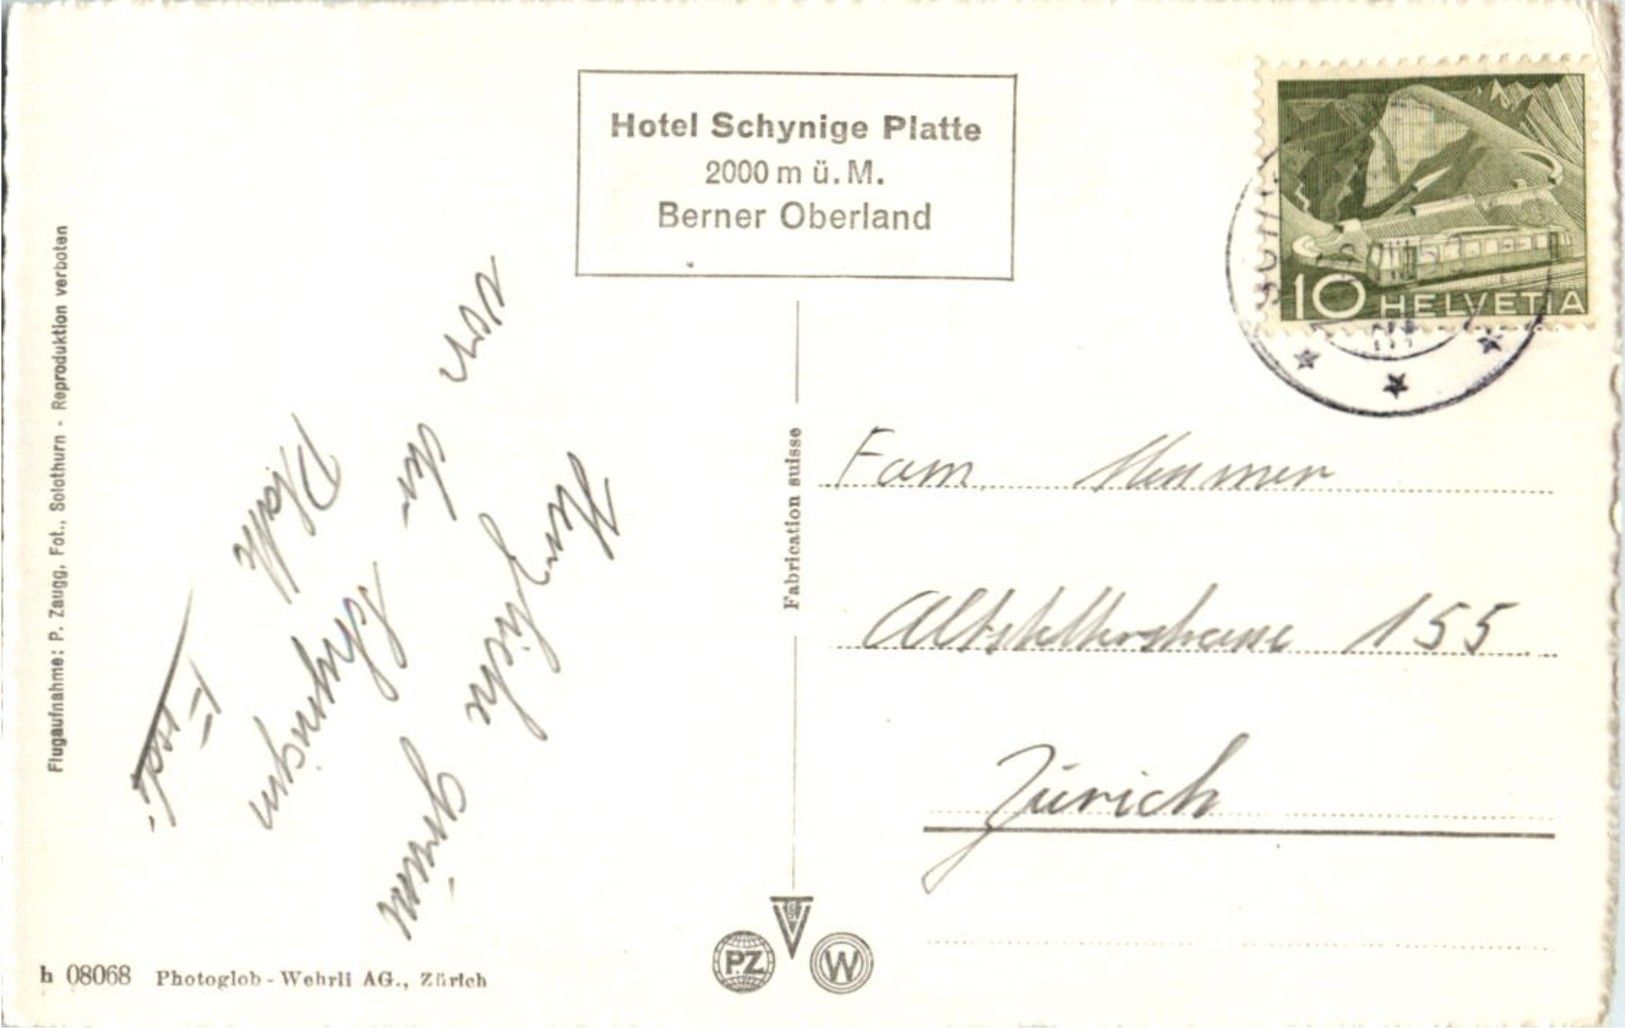 Hotel Schynige Platte
2000 m ü. M.
Berner Oberland
10 HELVETIA
Flugaufnahme: P. Zaugg, Fot., Solothurn - Reproduktion verboten
Herzliche Grüsse
von der Schynigen
Platte
Fabrication suisse
Fam.
Altstetterstrasse 155
Zürich
PZ
W
h 08068 Photoglob-Wehrli AG., Zürich